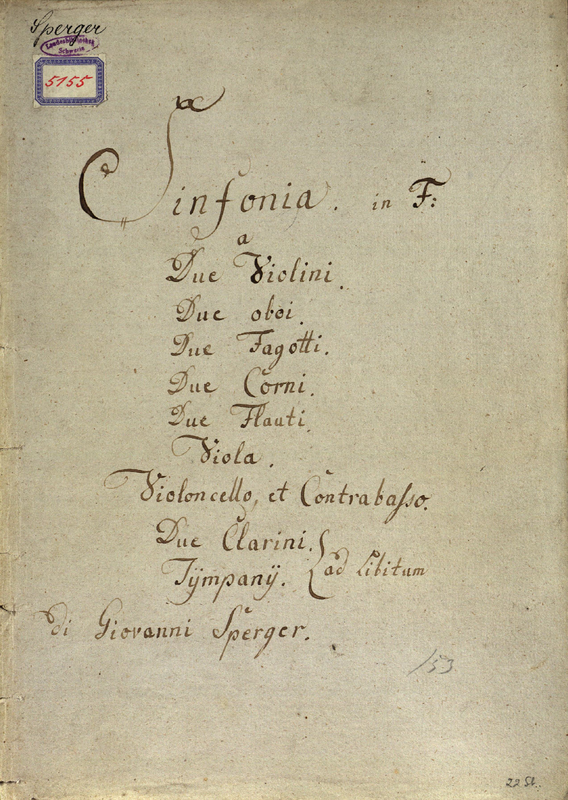 Sperger
Landesbibliothek
Schwerin
5155
Sinfonia. in F:
a
Due Violini.
Due oboi.
Due Fagotti.
Due Corni.
Due Flauti.
Viola.
Violoncello, et Contrabaſso.
Due Clarini.
Tÿmpanÿ. { ad Libitum
di Giovanni Sperger.
153
22 St.